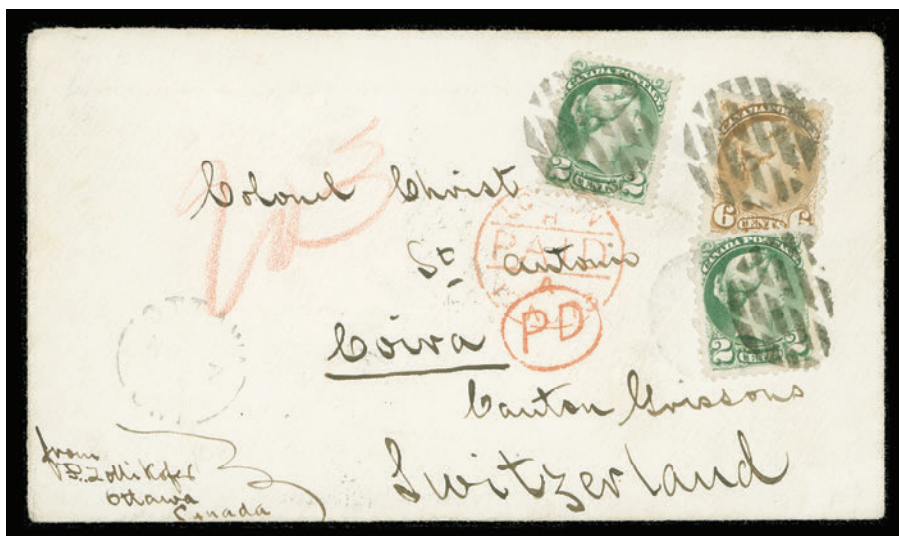 CANADA POSTAGE
2 CENTS 2
CANADA POSTAGE
6 CENTS 6
CANADA POSTAGE
2 CENTS 2
Colonel Christ
St Antonio
PAID
PD
Coira
Canton Grissons
Switzerland
from
Zollikofer
Ottawa
Canada